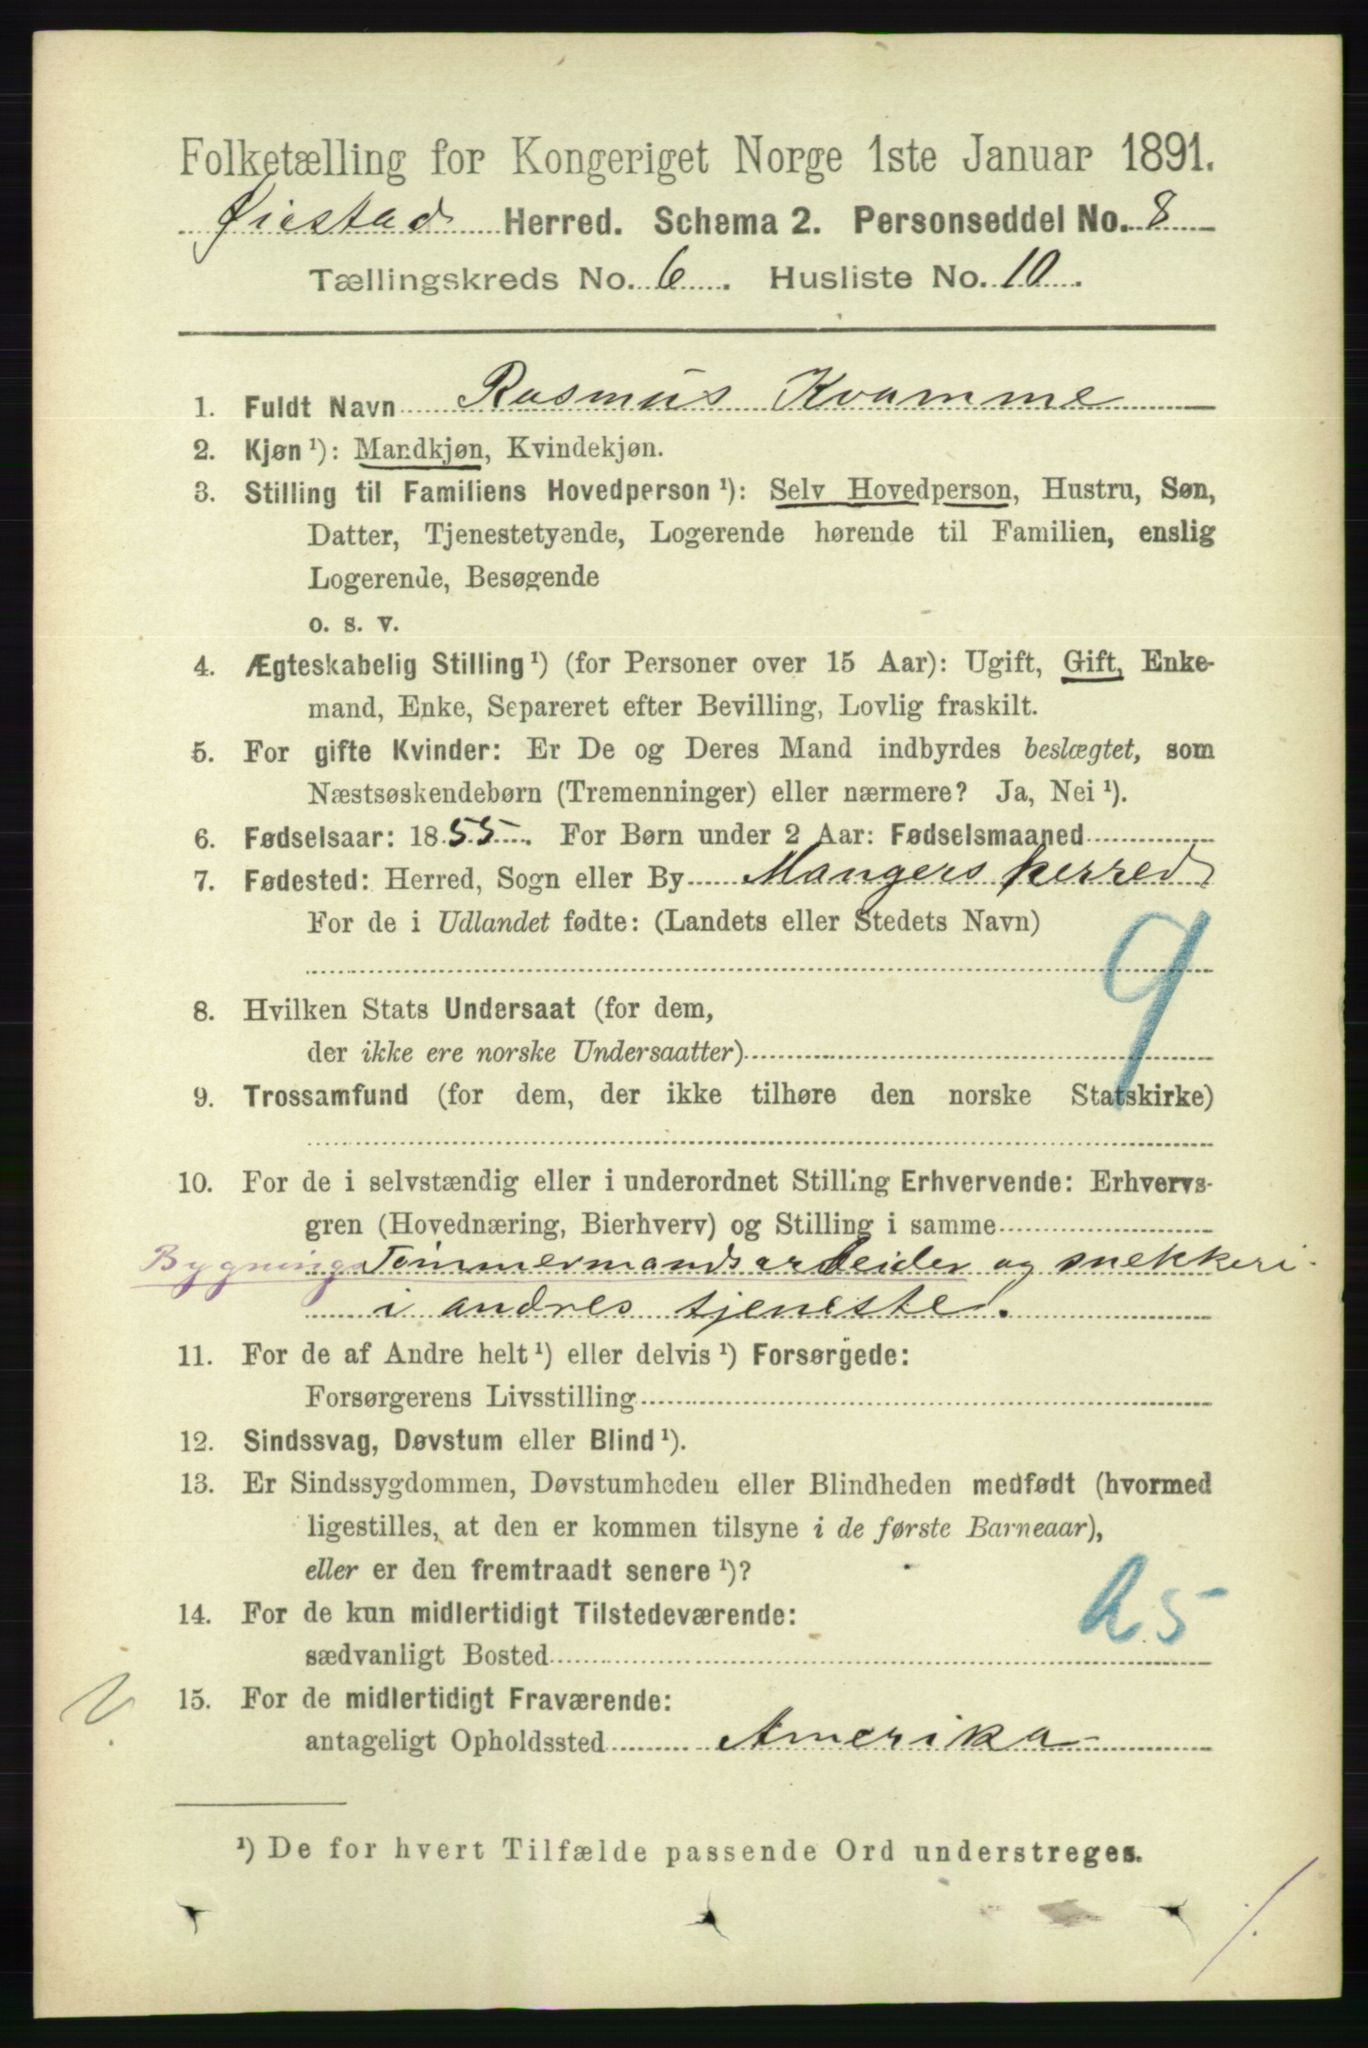 Folketælling for Kongeriget Norge 1ste Januar 1891.
Øiestad Herred. Schema 2. Personseddel No. 8
Tællingskreds No. 6. Husliste No. 10.
1. Fuldt Navn Rasmus Kvamme
2. Kjøn ¹): Mandkjøn, Kvindekjøn.
3. Stilling til Familiens Hovedperson ¹): Selv Hovedperson, Hustru, Søn,
Datter, Tjenestetyende, Logerende hørende til Familien, enslig
Logerende, Besøgende
o. s. v.
4. Ægteskabelig Stilling ¹) (for Personer over 15 Aar): Ugift, Gift, Enke-
mand, Enke, Separeret efter Bevilling, Lovlig fraskilt.
5. For gifte Kvinder: Er De og Deres Mand indbyrdes beslægtet, som
Næstsøskendebørn (Tremenninger) eller nærmere? Ja, Nei ¹).
6. Fødselsaar: 1855. For Børn under 2 Aar: Fødselsmaaned
7. Fødested: Herred, Sogn eller By Mangers herred
For de i Udlandet fødte: (Landets eller Stedets Navn)
9
8. Hvilken Stats Undersaat (for dem,
der ikke ere norske Undersaatter)
9. Trossamfund (for dem, der ikke tilhøre den norske Statskirke)
10. For de i selvstændig eller i underordnet Stilling Erhvervende: Erhvervs-
gren (Hovednæring, Bierhverv) og Stilling i samme
Bygnings Tømmermandsarbeider og snekkeri
i andres tjeneste.
11. For de af Andre helt ¹) eller delvis ¹) Forsørgede:
Forsørgerens Livsstilling
12. Sindssvag, Døvstum eller Blind ¹).
13. Er Sindssygdommen, Døvstumheden eller Blindheden medfødt (hvormed
ligestilles, at den er kommen tilsyne i de første Barneaar),
eller er den fremtraadt senere ¹)?
14. For de kun midlertidigt Tilstedeværende:
sædvanligt Bosted
15. For de midlertidigt Fraværende:
antageligt Opholdssted Amerika
¹) De for hvert Tilfælde passende Ord understreges.